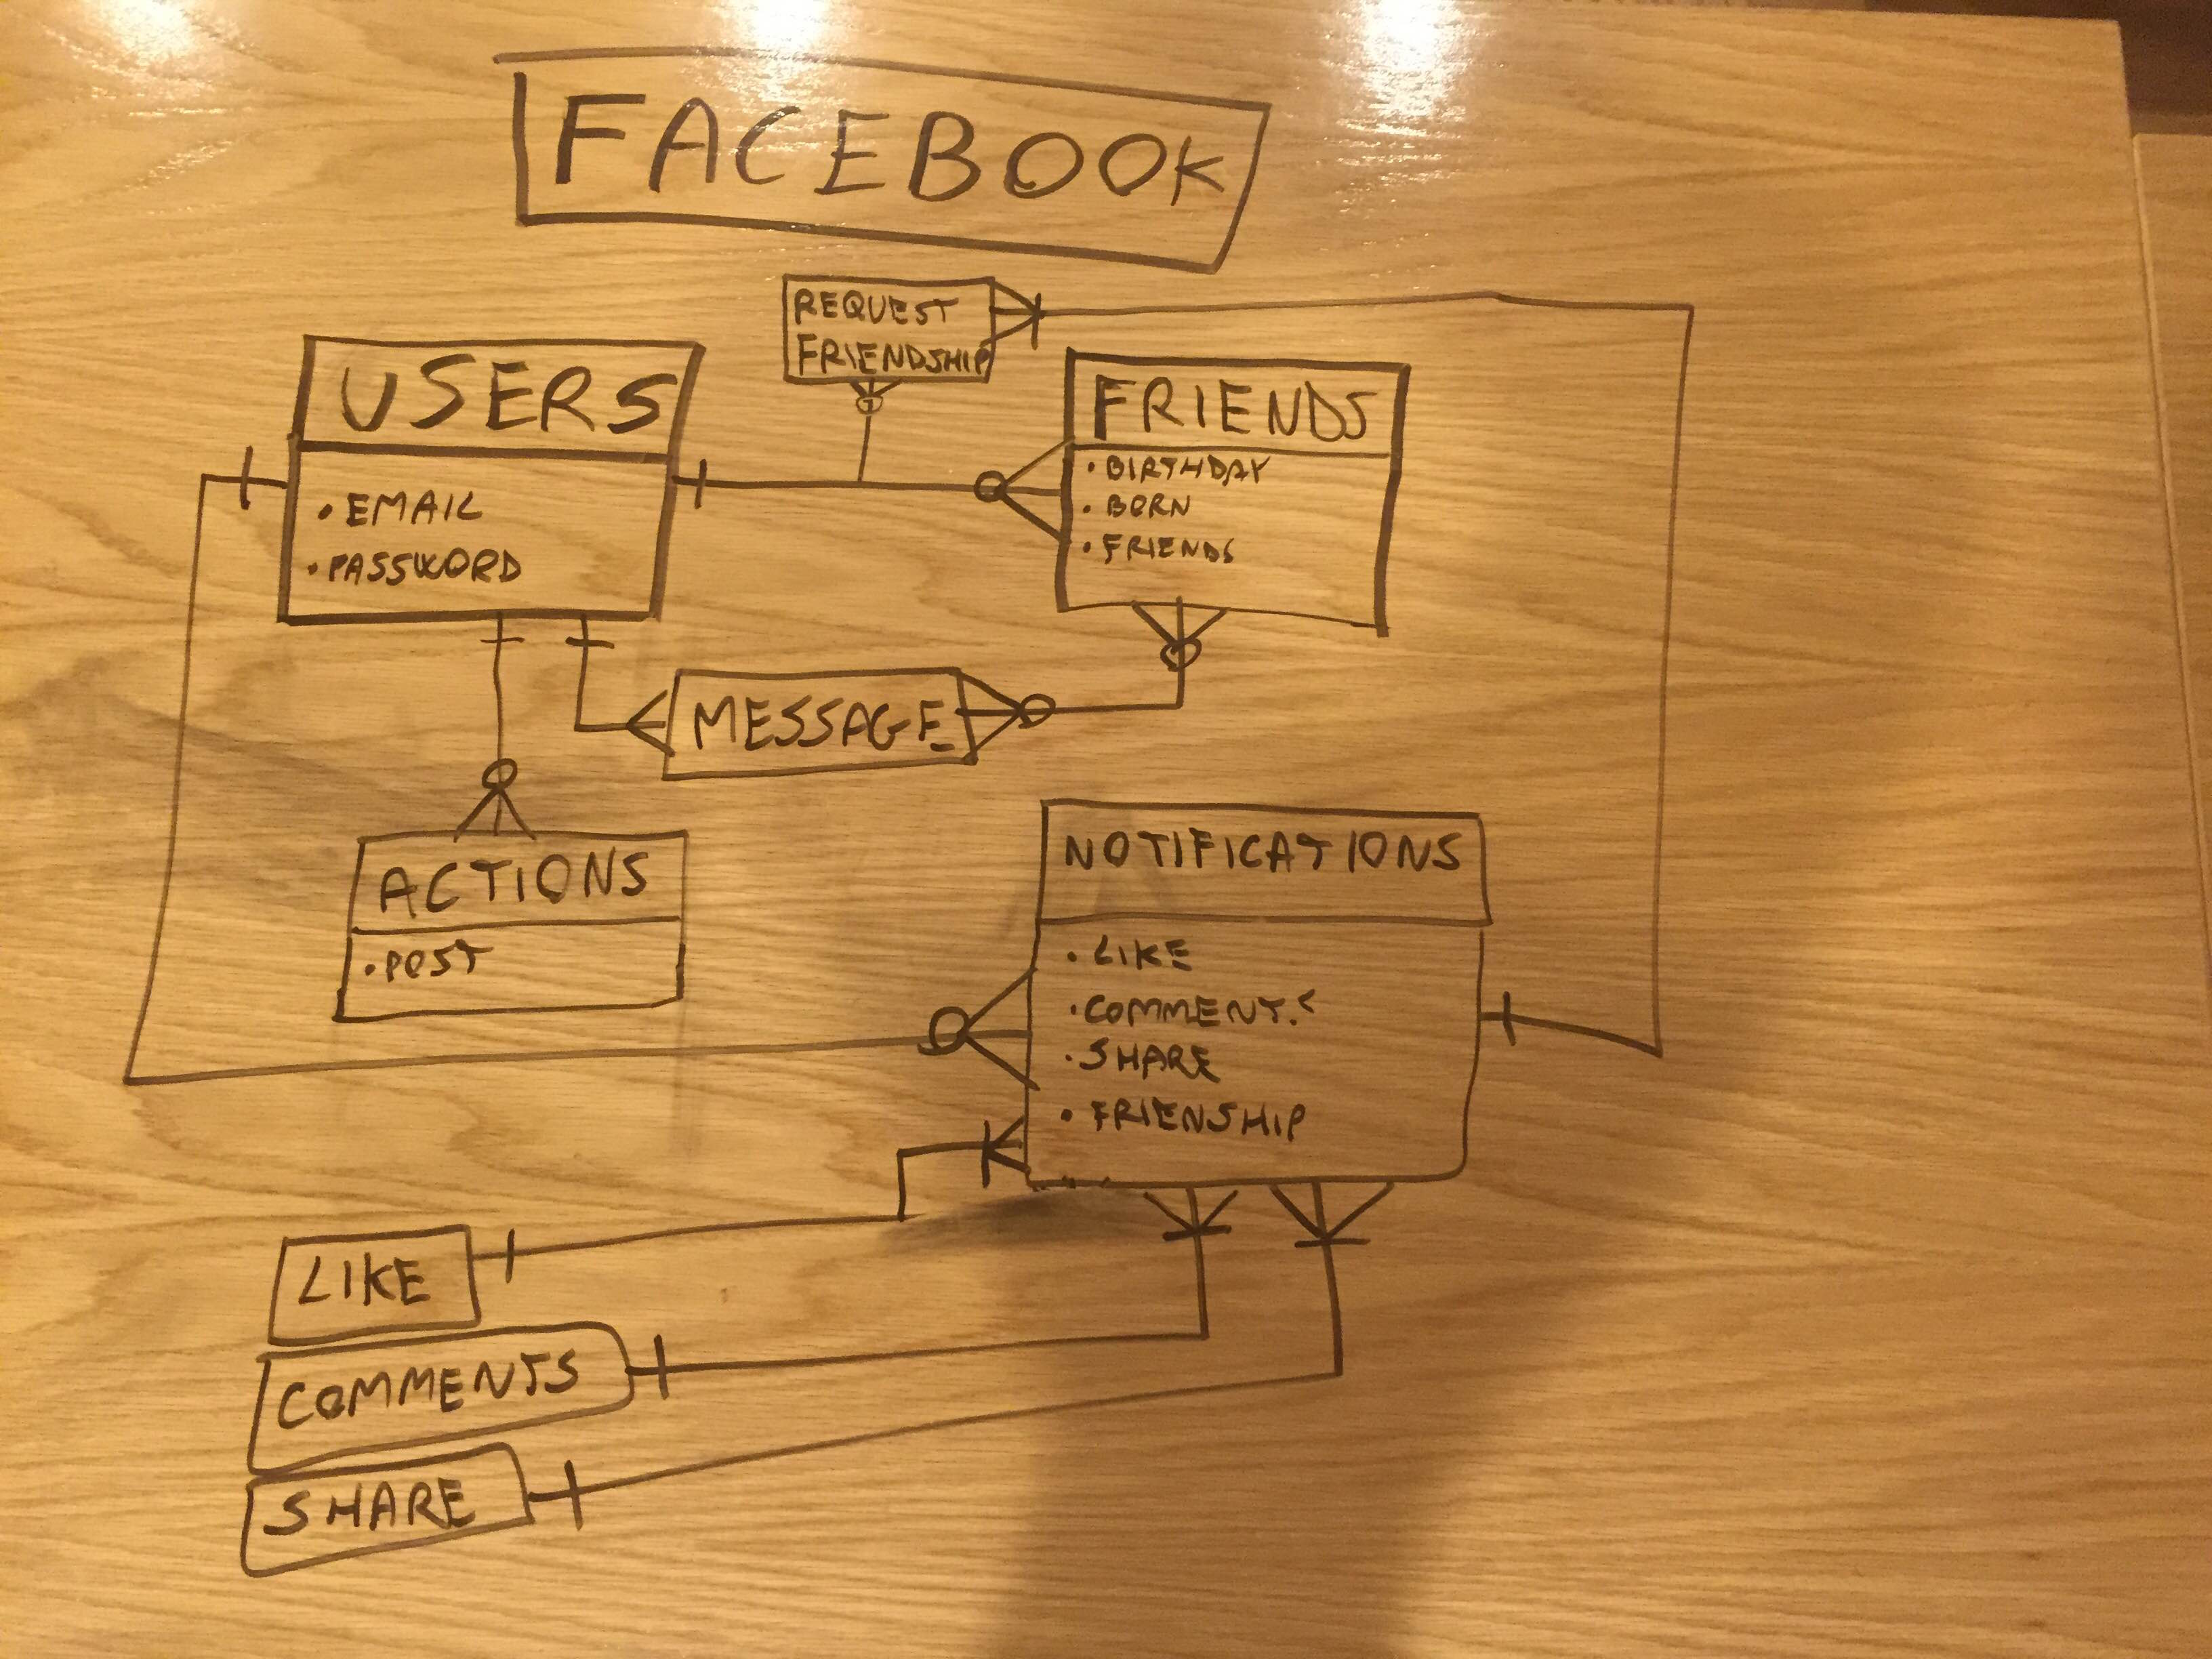 FACEBOOK
REQUEST
FRIENDSHIP
USERS
• EMAIL
• PASSWORD
FRIENDS
• BIRTHDAY
• BORN
• FRIENDS
MESSAGE
ACTIONS
• POST
NOTIFICATIONS
• LIKE
• COMMENTS
• SHARE
• FRIENSHIP
LIKE
COMMENTS
SHARE